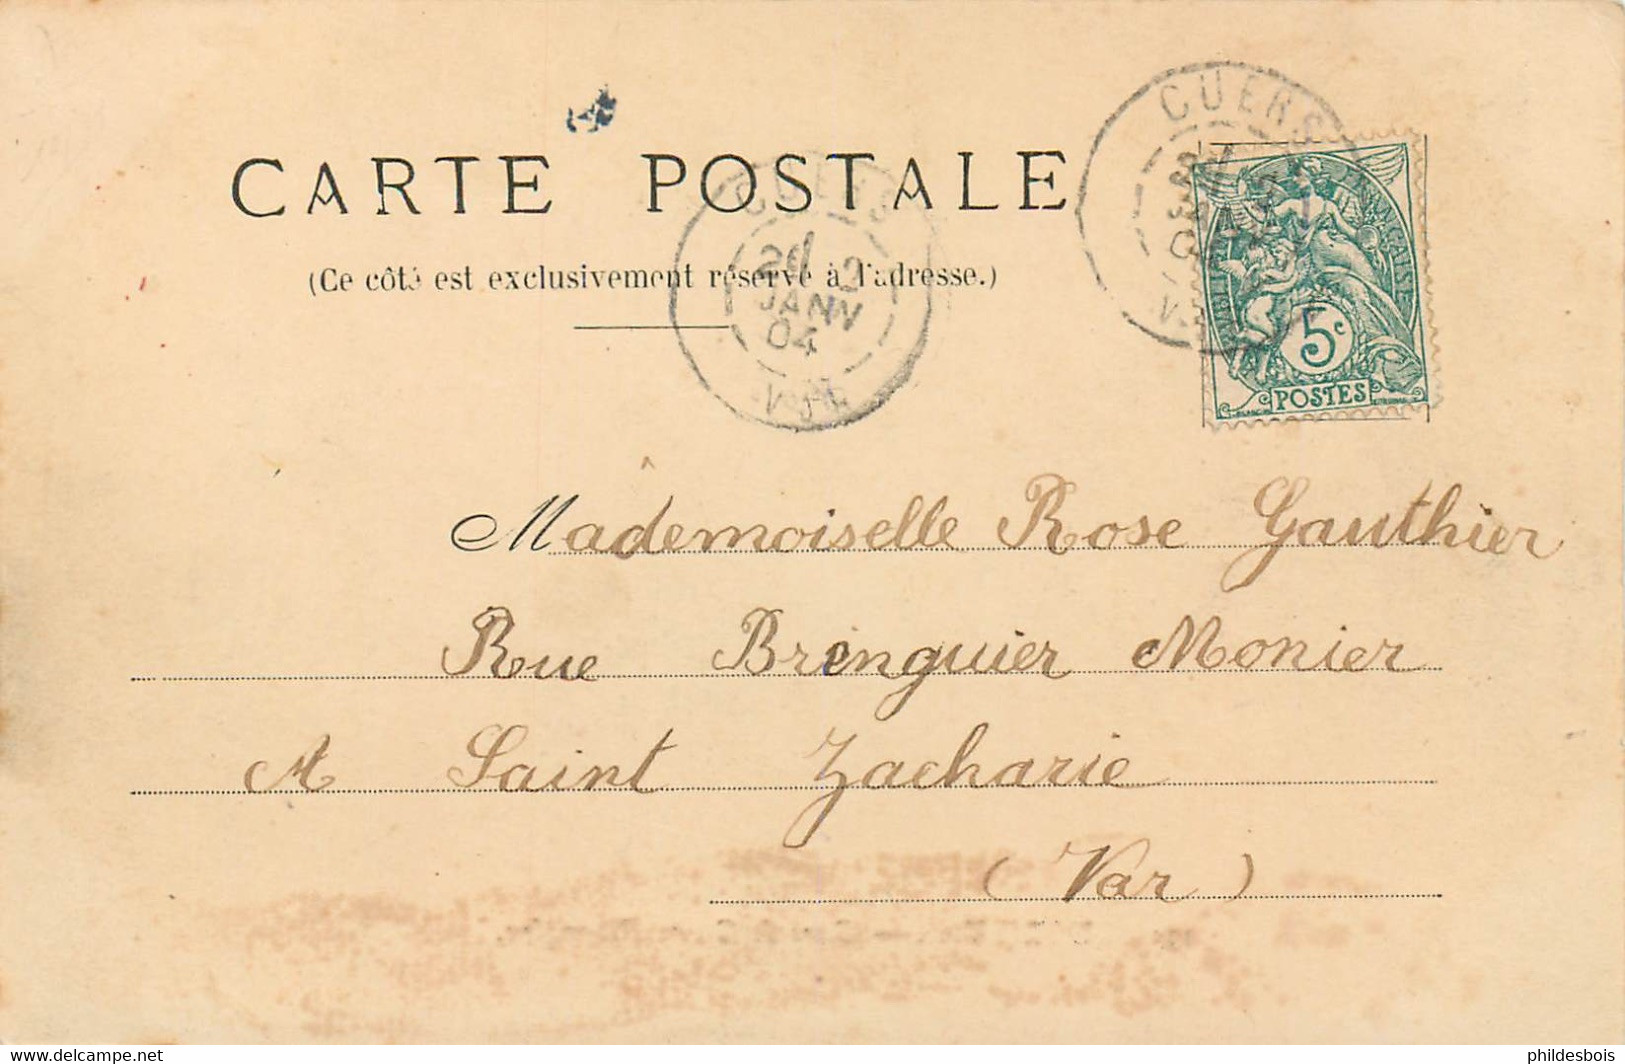 CARTE POSTALE
(Ce côté est exclusivement réservé à l'adresse.)
CUERS
20
2
JANV
04
VAR
CUERS
5c
POSTES
Mademoiselle Rose Gauthier
Rue Brenguier Monier
A Saint Zacharie
(Var)
www.delcampe.net
phildesbois